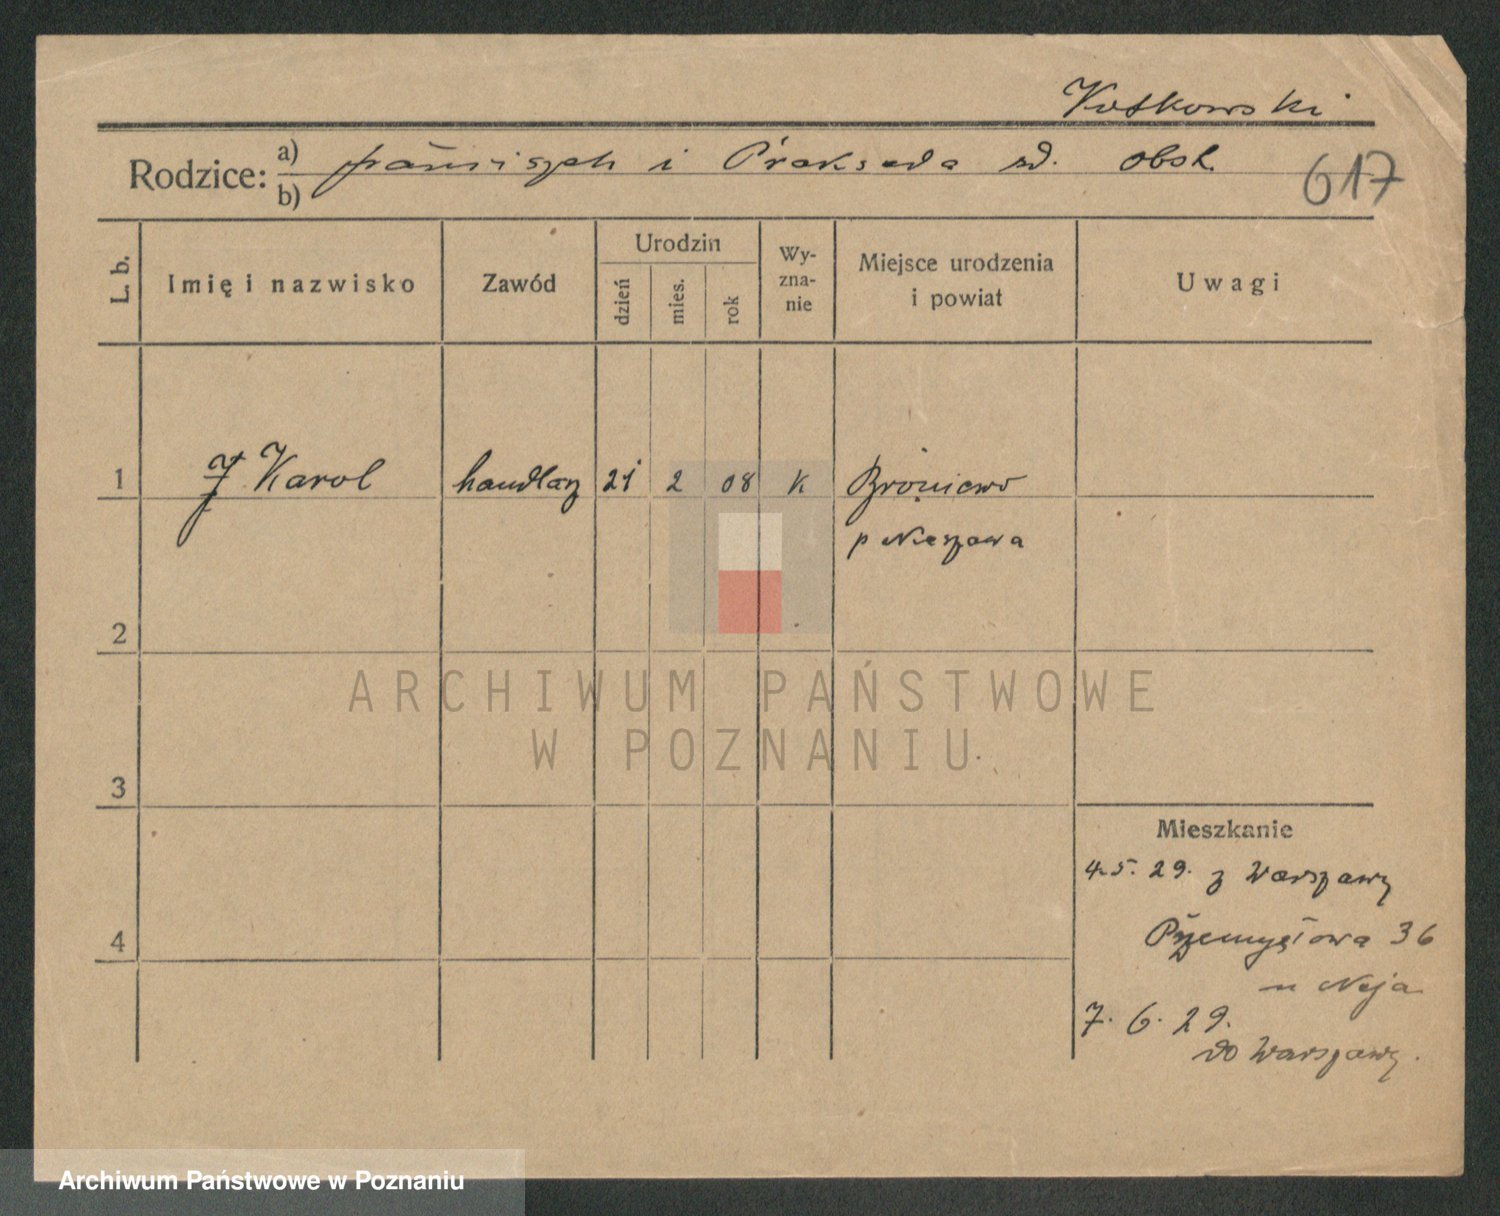 Kotkowski
Rodzice: a) i Prakseda zd.
b)
617
L. b. Imię i nazwisko Zawód Urodzin dzień mies. rok Wy-zna-nie Miejsce urodzenia i powiat Uwagi
1 Karol handlarz 21 2 08 K Broniewo
p Nieszawa
2
ARCHIWUM PAŃSTWOWE
W POZNANIU
3
Mieszkanie
4.5.29. z Warszawy
Przemysłowa 36
4
u Neja
7.6.29.
do Warszawy.
Archiwum Państwowe w Poznaniu